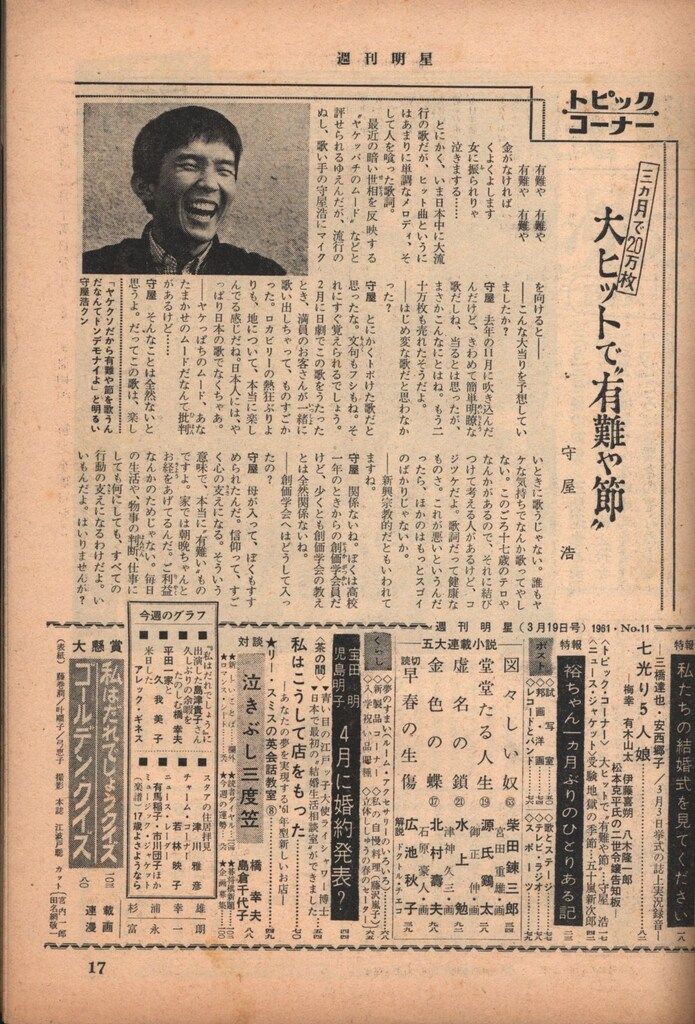 週刊明星
トピック
コーナー
三カ月で20万枚
大ヒットで〝有難や節〟
守屋 浩
有難や 有難や
有難や 有難や
金がなければ
くよくよします
女に振られりゃ
泣きます……
とにかく、いま日本中に大流
行の歌だが、ヒット曲というに
はあまりに単調なメロディ、そ
して人を喰った歌詞。
最近の暗い世相を反映する
〝ヤケッパチのムード〟などと
評せられるゆえんだが、流行の
ぬし、歌い手の守屋浩にマイク
を向けると――
――こんな大当りを予想してい
ましたか?
守屋 去年の11月に吹き込んだ
んだけど、きわめて簡単明瞭な
歌だしね、当るとは思ったが、
まさかこんなにとはね。もう二
十万枚も売れたそうだよ。
――はじめ変な歌だと思わなか
った?
守屋 とにかくトボけた歌だと
思ったな。文句もフシもね。そ
れにすぐ覚えられるでしょう。
2月に日劇でこの歌をうたった
とき、満員のお客さんが一緒に
歌い出しちゃって、ものすごか
った。ロカビリーの熱狂ぶりよ
りも、地について、本当に楽し
んでる感じだね。日本人には、や
っぱり日本の歌でなくちゃあ。
――ヤケっぱちのムード、あな
たまかせのムードだなんて批判
があるけど……
守屋 そんなことは全然ないと
思うよ。だってこの歌は、楽し
「ヤケクソだから有難や節を歌うん
だなんてトンデモナイよ」と明るい
守屋浩クン
いときに歌うじゃない。誰もヤ
ケな気持ちでなんか歌ってやし
ない。このごろ十七歳のテロや
なんかがあるので、それに結び
つけて考える人があるけど、コ
ジツケだよ。歌詞だって健康な
ものさ。これが悪いというんだ
ったら、ほかのはもっとスゴイ
のばかりじゃないか。
――新興宗教的だともいわれて
ますね。
守屋 関係ないね。ぼくは高校
一年のときからの創価学会員だ
けど、少くとも創価学会の教え
とは全然関係ないね。
――創価学会へはどうして入っ
たの?
守屋 母が入って、ぼくもすす
められたんだ。信仰って、すご
く心の支えになる。そういう
意味で、本当に〝有難い〟もの
ですよ。家では朝晩ちゃんと
お経をあげてるんだ。ご利益
なんかのためじゃない。毎日
の生活や、物事の判断、仕事に
しても何にしても、すべての
行動の支えになるわけだよ。い
いもんだよ。はいりませんか?
週刊明星 (3月19日号) 1961・No.11
特報
私たちの結婚式を見てください 一八
三橋達也・安西郷子/3月3日挙式の誌上実況録音
七光り5人娘 八二
梅幸 有木山太 伊藤喜朔 八木隆一郎
松本克平氏の二世令嬢告知板
<トピック・コーナー> 大ヒットで〝有難や節〟・守屋浩 一七
<ニュース・ジャケット> 受験地獄の季節・五十嵐新次郎 四二
特報
裕ちゃん一カ月ぶりのひとりある記 二三
ポスト
試写室
邦画・洋画
レコードとバンド
歌とステージ
テレビ・ラジオ
スポーツ
五大連載小説
図々しい奴 63 柴田錬三郎 三四
宮田重雄・画
堂堂たる人生 19 源氏鶏太
御正伸・画
虚名の鎖 21 水上勉
津神久三・画
金色の蝶 17 北村寿夫
石原豪人・画
読切 早春の生傷 広池秋子
解説 ドクトル・チエコ
くらし
夢のすまい(ルーム・アクセサリーのいろいろ) 六八
私の自慢料理(藤家虹子)
宝田明
児島明子
4月に婚約発表? 四四
<茶の間> 青い目の江戸ッ子大使ライシャワー博士 五四
日本で最初の〝結婚生活相談室〟ができました
私はこうして店をもった
――あなたの夢を実現する'61年型新しいお店――
★リー・スミスの英会話教室⑧
対談
泣きぶし三度笠
橋幸夫
島倉千代子
★今週の運勢
今週のグラフ
■『私はだれでしょう』に
出演・島津貴子さん
■久しぶりの余暇を
たのしむ橋幸夫
■平田一家と
我美子
■米日した
アレック・ギネス
■スタアの住居拝見
津川雅彦
■チャーム・コーナー
若林映子
■ニュース・レーダー
有馬稲子・市川団子ほか
■ミュージック・ジャケット
(楽譜)17歳よさようなら
大懸賞
私はだれでしょうクイズ
ゴールデン・クイズ 八〇
連載
漫画
雄朗
幸一
浦永
杉富
(表紙) 藤巻潤/叶順子/弓恵子 撮影 本誌 江波戸聡 カット (宮内一郎
田名網敬一)
17